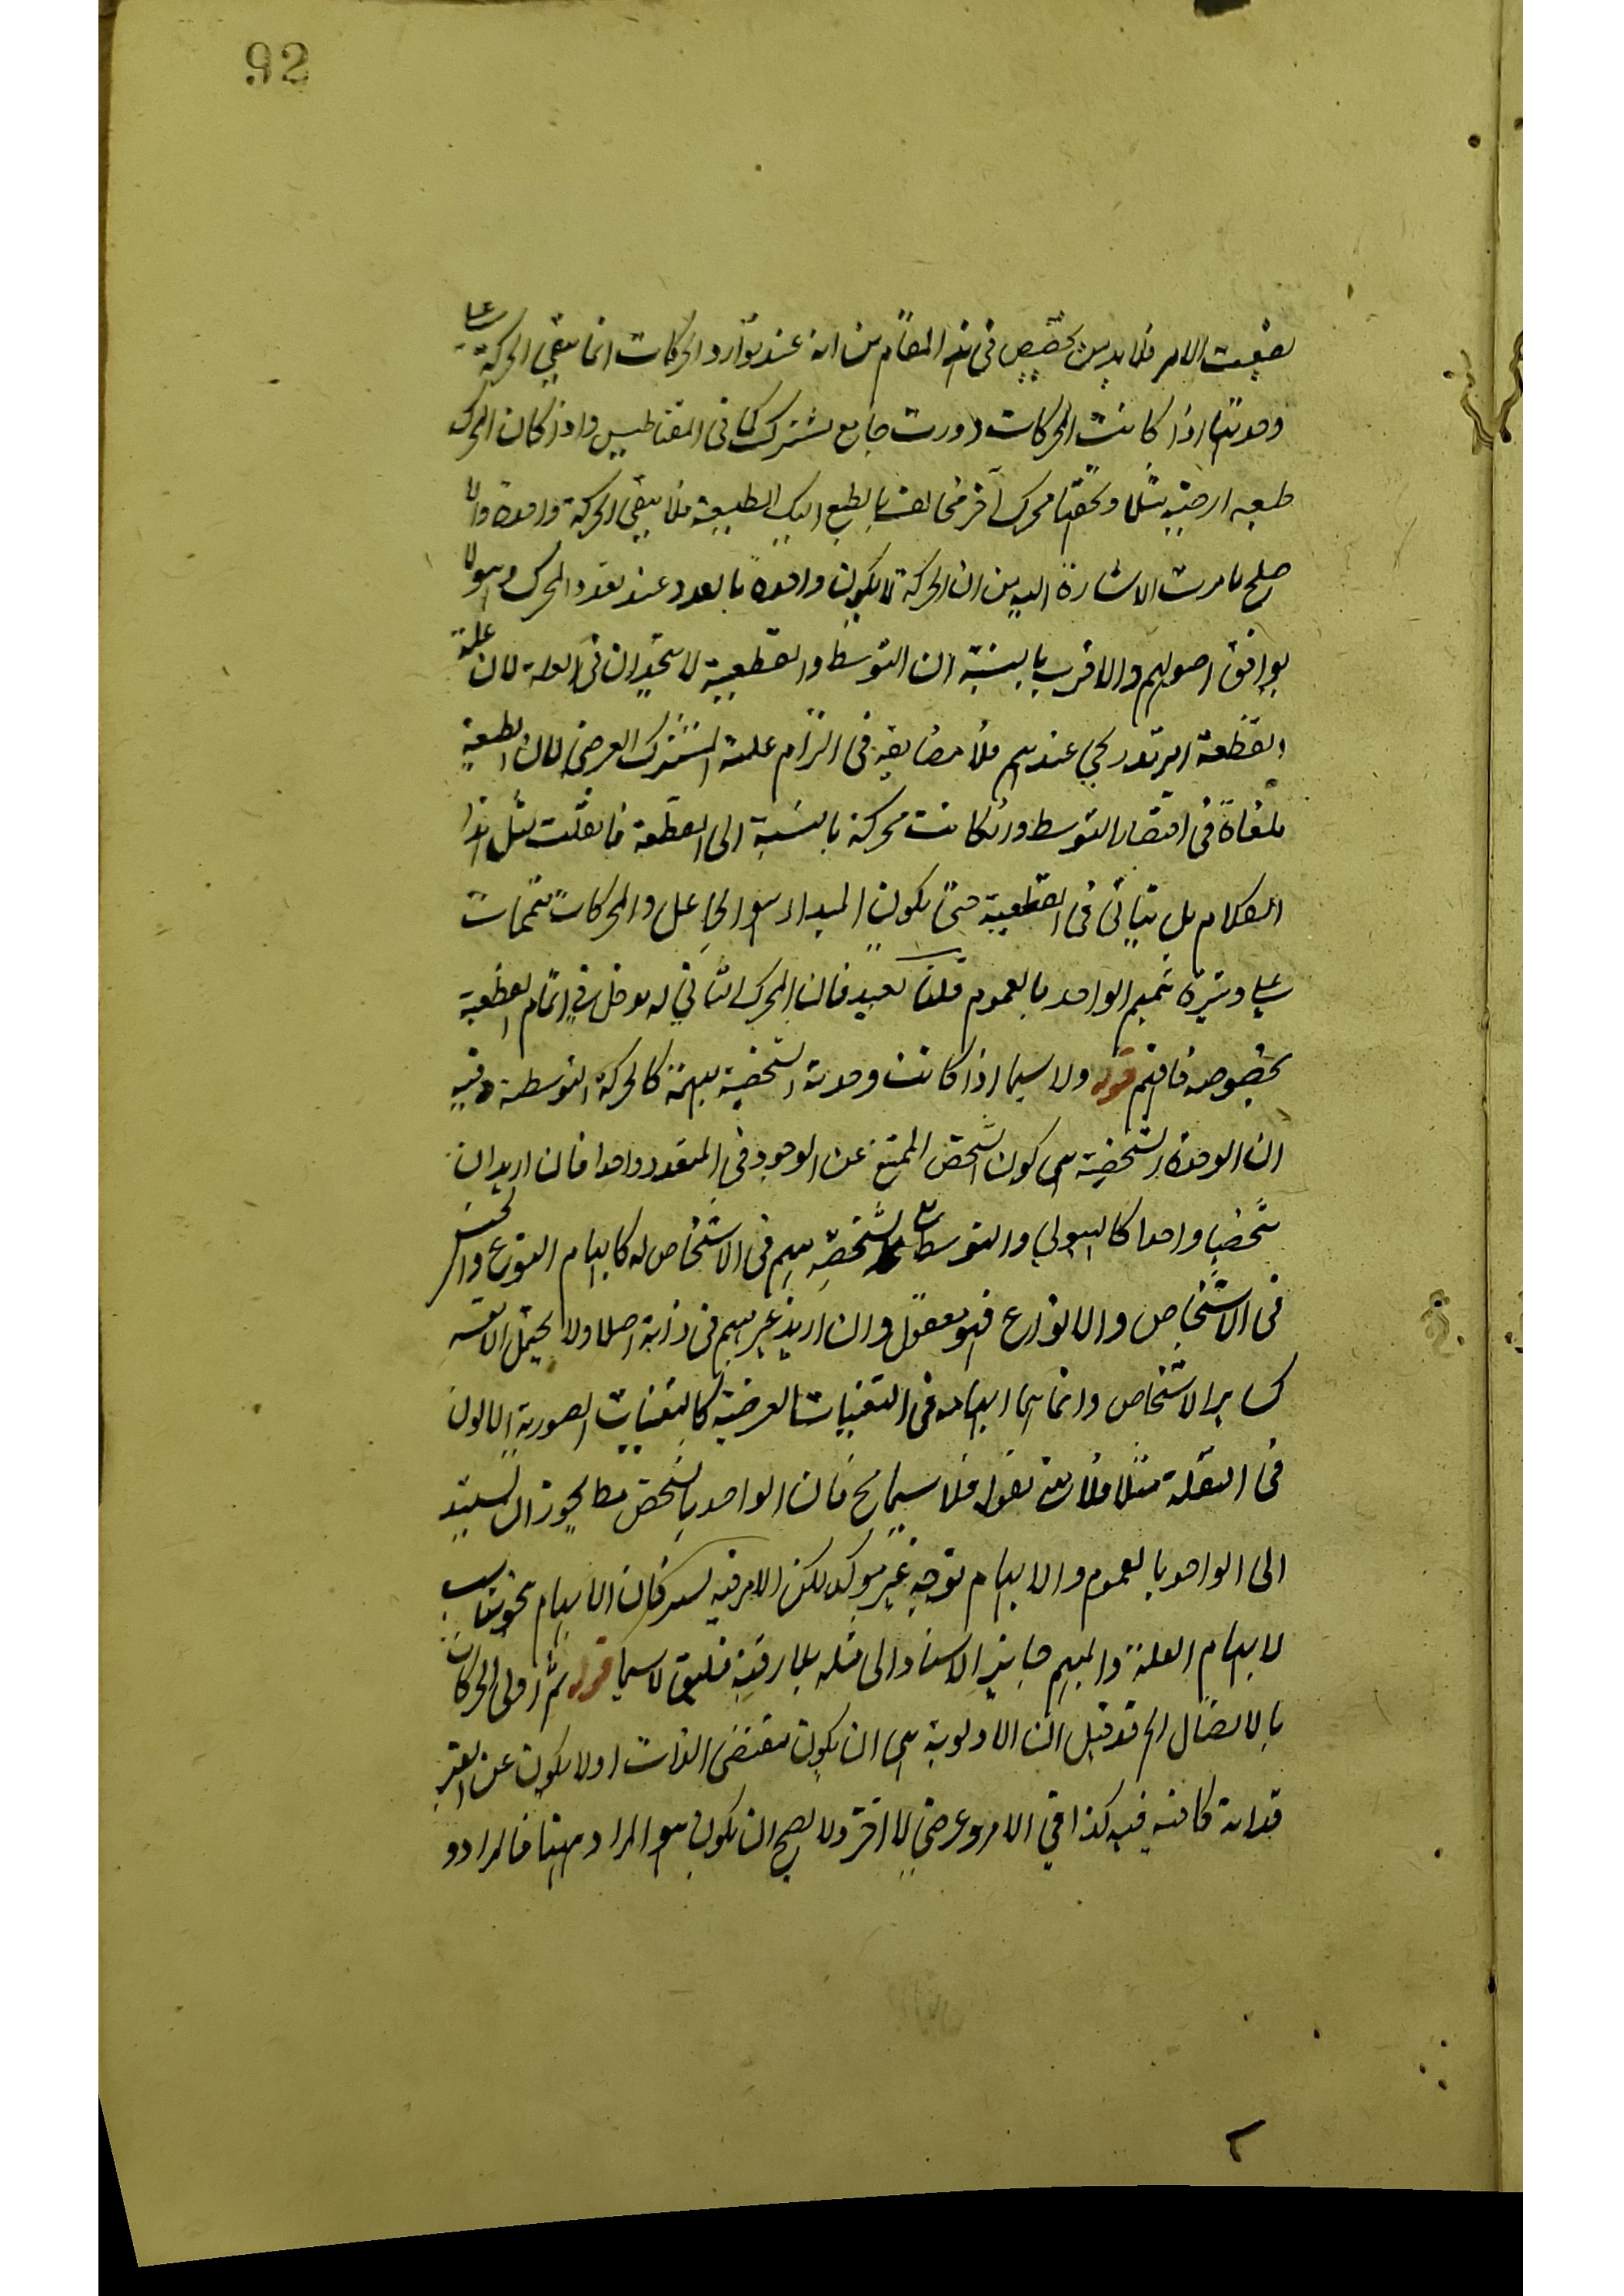 92
الامر فلا بد من تخصيص فى هذا المقام من انه عند توارد المحركات انما يبقى الحركة على
وحدتها اذا كانت المحركات ذوات جامع مشترك كما فى المقناطيس واذا كان المحرك
طبعه ارضية مثلا ومحرك آخر مخالف بالطبع لتلك الطبيعة فلا يبقى الحركة واحدة والا
صلح ما مرت الاشارة اليه من ان الحركة لا يكون واحدة بالعدد عند تعدد المحرك وهو لا
يوافق اصولهم والاقرب بالنسبة ان التوسط والقطعية لا يتحدان فى العلة لان علية
القطعة امر تدريجي عندهم فلا مضايقة فى التزام علية المشترك العرضي لان الطبيعة
ملغاة فى اقتضاء التوسط وان كانت محركة بالنسبة الى القطعة فان قلت مثل هذا
الكلام بل يتاتى فى القطعية حتى يكون المبدا هو الجاعل والمحركات متممات
على وتيرة تتميم الواحد بالعموم قلنا بعيد فان المحرك الثاني له دخل في اتمام القطعية
بخصوصه فافهم قوله ولا سيما اذا كانت وحدته الشخصية مبهمة كالحركة التوسطية وفيه
ان الوحدة الشخصية هي كون الشخص الممتنع عن الوجود في المتعدد واحدا فان اريد ان
شخصا واحدا كالهيولي والتوسط شخصه مبهم فى الاشخاص له كابهام النوع والجنس
فى الاشخاص والانواع فهو معقول وان اريد غير مبهم فى ذاته اصلا ولا يحتمل الاقسمة
كساير الاشخاص وانما لها ابهام فى التعينات العرضية كالتعينات الصورية الالوان
فى النقلة مثلا فلا نقول فلا سيما ح فان الواحد بالشخص مط يجوز ان يستند
الى الواحد بالعموم والابهام توجيه غير موكد لكن الامر فيه فان الابهام نحو يناسب
لابهام العلة والمبهم جايز الاستناد الى مثله بلا رقية فليق لا سيما قوله ثم اولى الحركات
بالاتصال الخ قد قيل ان الاولوية هي ان يكون مقتضى الذات اولا يكون عن الغير
كافية فيه كذا في الامر وعرضي لا آخر ولا يصح ان يكون هو المراد ههنا فالمراد و
٢